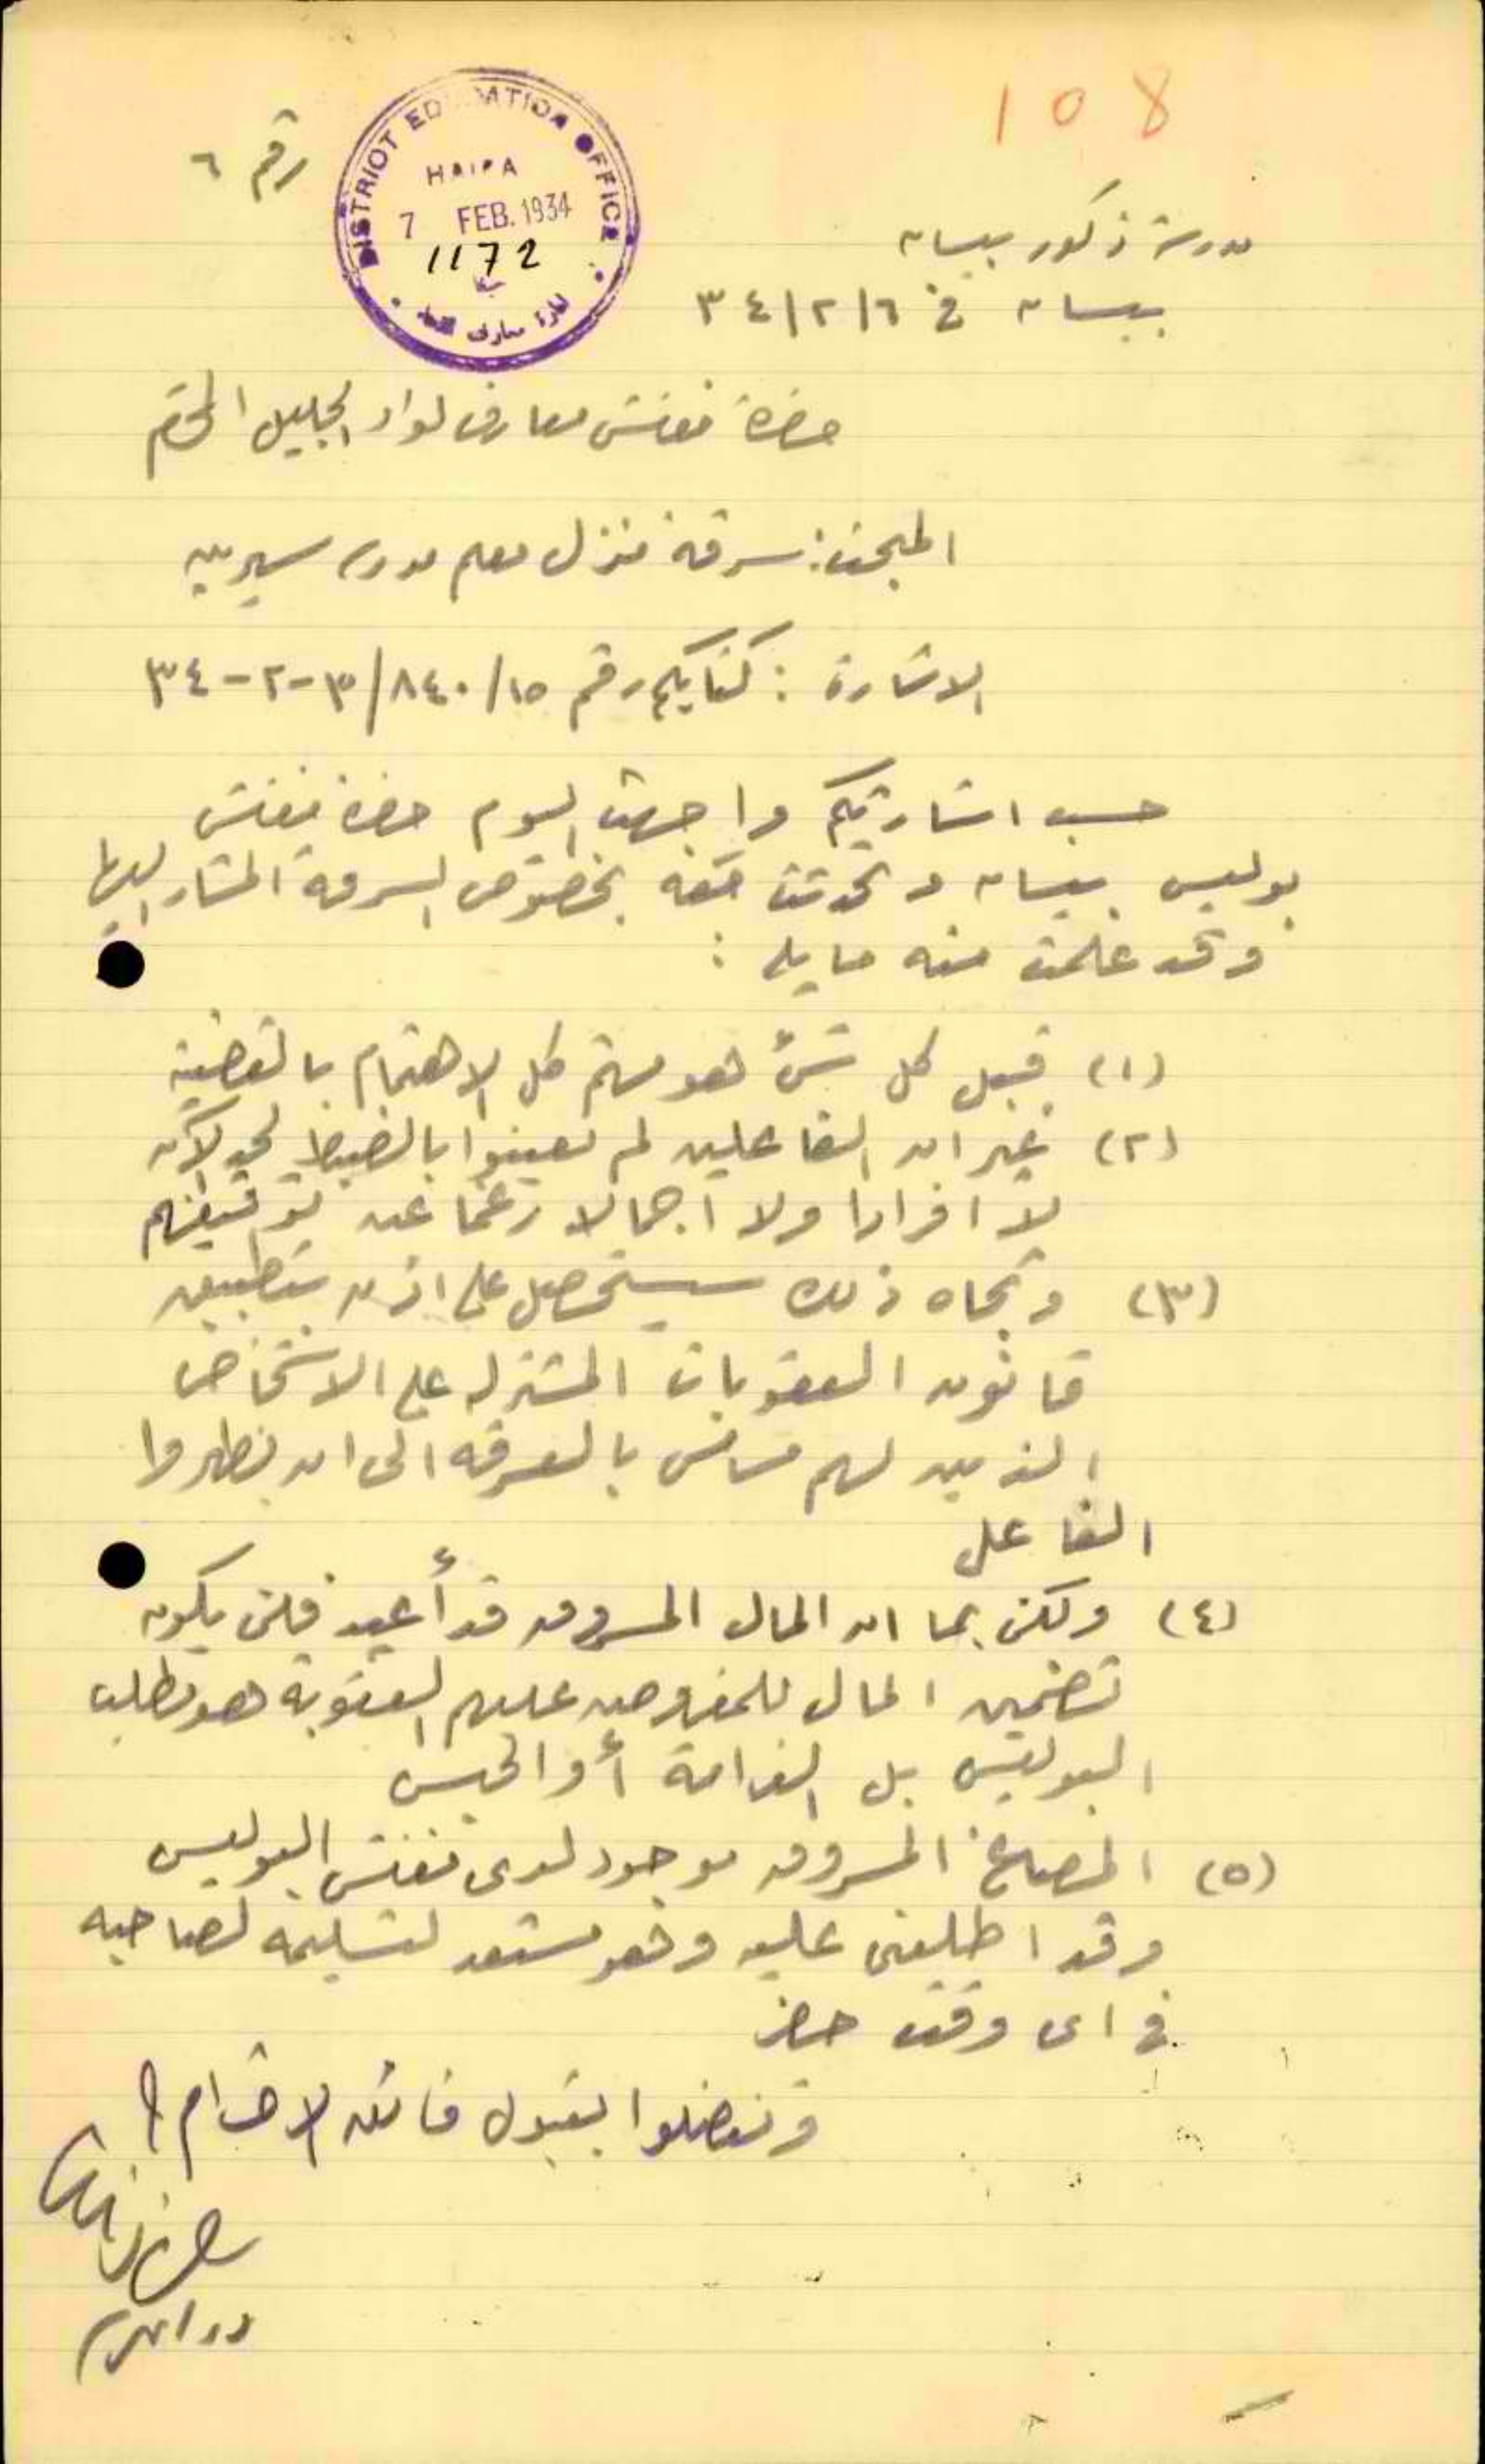 108
رقم ٦
DISTRICT EDUCATION OFFICE
HAIFA
7 FEB. 1934
1172
مدرسة ذكور بيسان
بيسان في ٣٤/٢/٦
حضرة مفتش معارف لواء الجليل المحترم
المبحث: سرقة منزل معلم مدرسة سيرين
الاشارة : كتابكم رقم ٨٤٠/١٥/ ٣-٢-٣٤
حسب اشارتكم واجهت اليوم حضرة مفتش
بوليس بيسان وتحدثت معه بخصوص السرقة المشار اليها
وقد علمت منه ما يلي :
(١) قبل كل شيء هو مهتم كل الاهتمام بالقضية
(٢) غير ان الفاعلين لم يعينوا بالضبط لحد الآن
لا افرادا ولا اجمالا رغما عن توقيفهم
(٣) وتجاه ذلك سيستحصل على اذن بتطبيق
قانون العقوبات المشتركة على الاشخاص
الذين لهم مساس بالسرقة الى ان يظهروا
الفاعل
(٤) ولكن بما ان المال المسروق قد أعيد فلن يكون
تضمين المال للمفروض عليهم العقوبة هو مطلب
البوليس بل الغرامة أو الحبس
(٥) المصاغ المسروق موجود لدى مفتش البوليس
وقد اطلعني عليه وهو مستعد لتسليمه لصاحبه
في اي وقت حضر
وتفضلوا بقبول فائق الاحترام